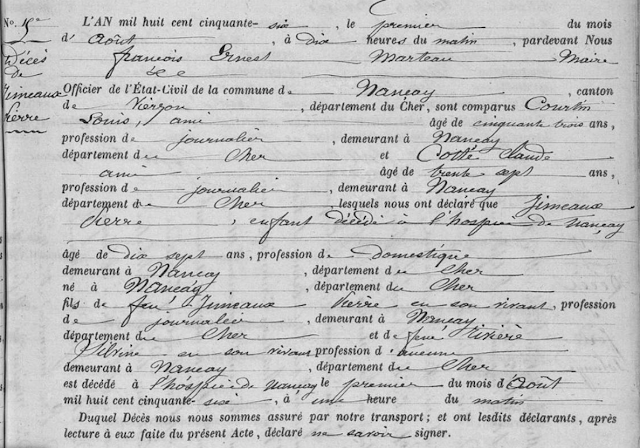 No. 5e
Décès
de
Jimeaux
Pierre
L'AN mil huit cent cinquante-six, le premier du mois
d'Août, à dix heures du matin, pardevant Nous
françois Ernest Marteau Maire
Officier de l'État-Civil de la commune de Nançay, canton
de Vierzon, département du Cher, sont comparus Courtin
Louis, ami âgé de cinquante trois ans,
profession de journalier, demeurant à Nançay
département du Cher et Cotté Claude
ami âgé de trente sept ans,
profession de journalier, demeurant à Nançay
département du Cher, lesquels nous ont déclaré que Jimeaux
Pierre, enfant décédé à l'hospice de Nançay
âgé de dix sept ans, profession de domestique
demeurant à Nançay, département du Cher
né à Nançay, département du Cher
fils de feu Jimeaux Pierre en son vivant, profession
de journalier, demeurant à Nançay
département du Cher et de feue Rivière
Silvine en son vivant profession d'aucune
demeurant à Nançay, département du Cher
est décédé à l'hospice de Nançay le premier du mois d'Août
mil huit cent cinquante-six, à une heure du matin
Duquel Décès nous nous sommes assuré par notre transport; et ont lesdits déclarants, après
lecture à eux faite du présent Acte, déclaré ne savoir signer.